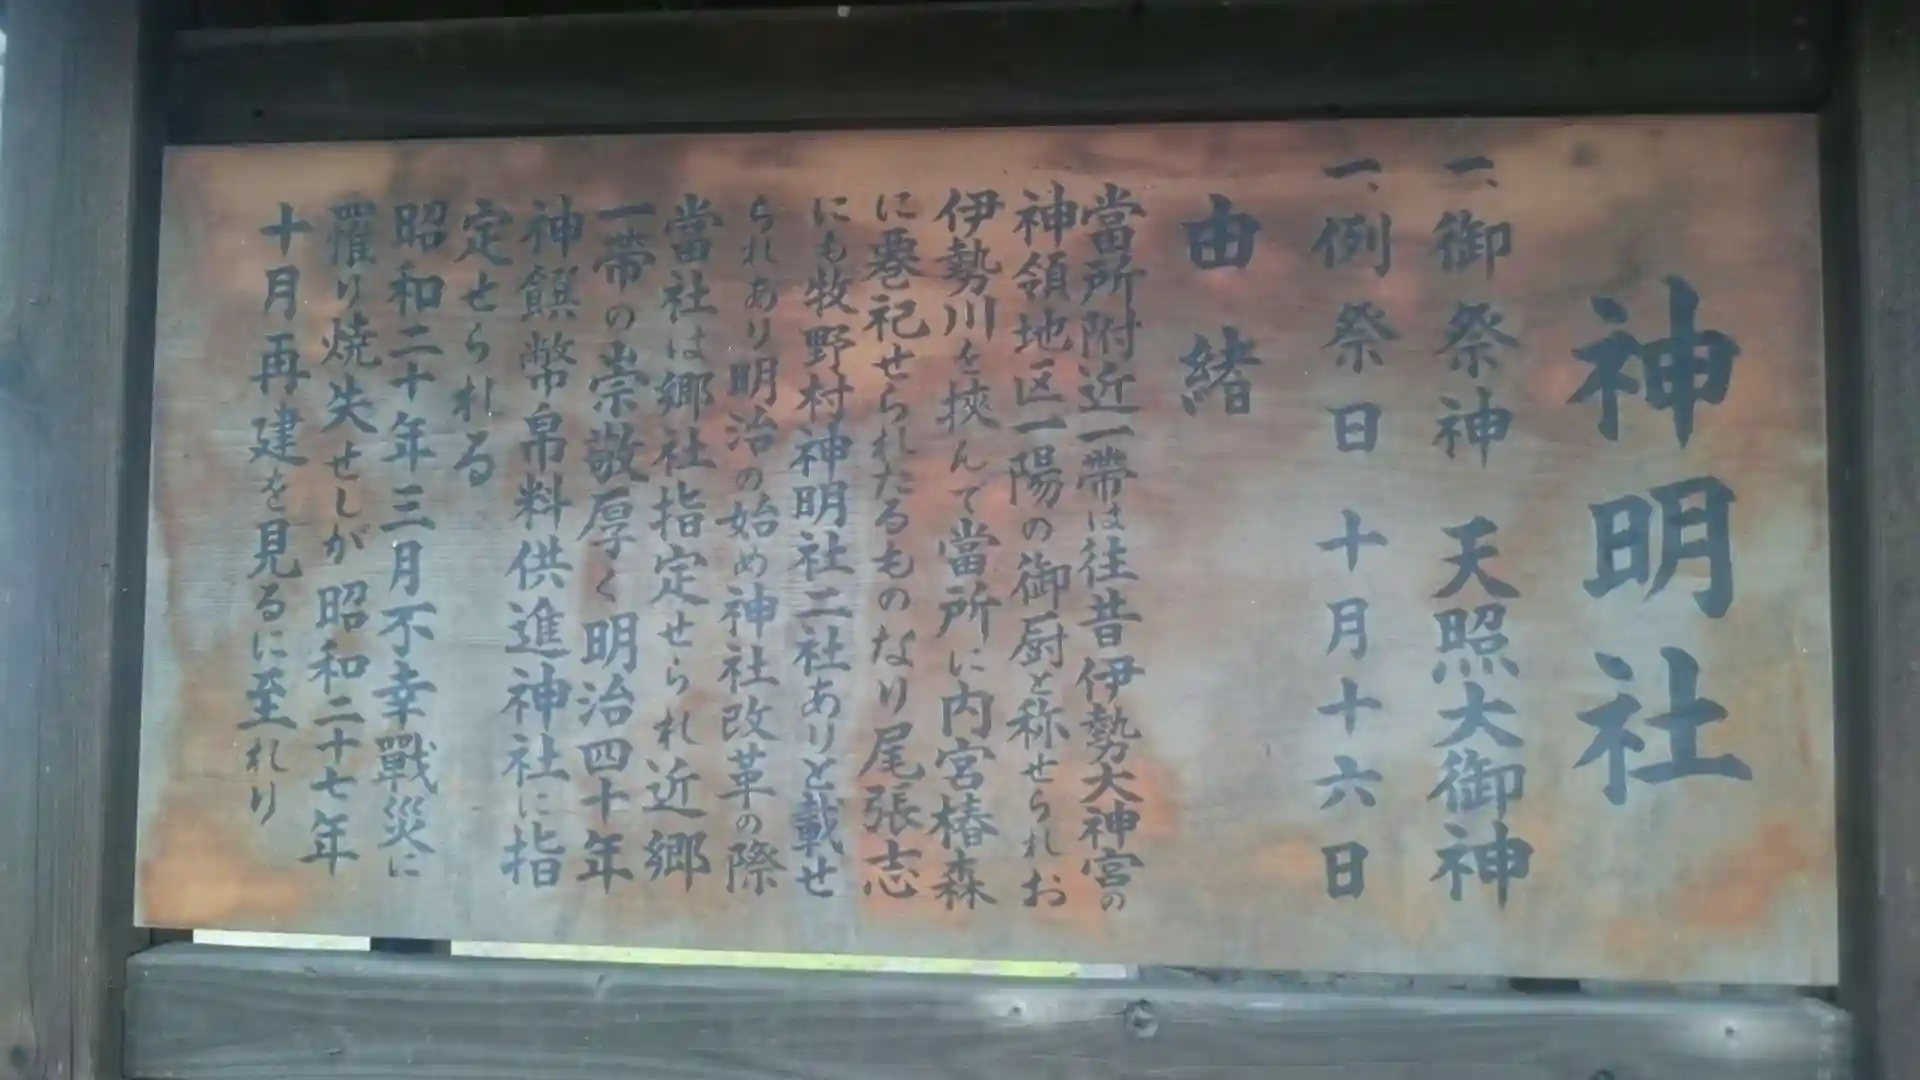 神明社
一、御祭神 天照大御神
一、例祭日 十月十六日
由緒
當所附近一帶は往昔伊勢大神宮の
神領地区一陽の御厨と称せられお
伊勢川を挾んで當所に内宮椿森
に遷祀せられたるものなり尾張志
にも牧野村神明社二社ありと載せ
られあり明治の始め神社改革の際
當社は郷社指定せられ近郷
一帶の崇敬厚く明治四十年
神饌幣帛料供進神社に指
定せられる
昭和二十年三月不幸戰災に
罹り焼失せしが昭和二十七年
十月再建を見るに至れり